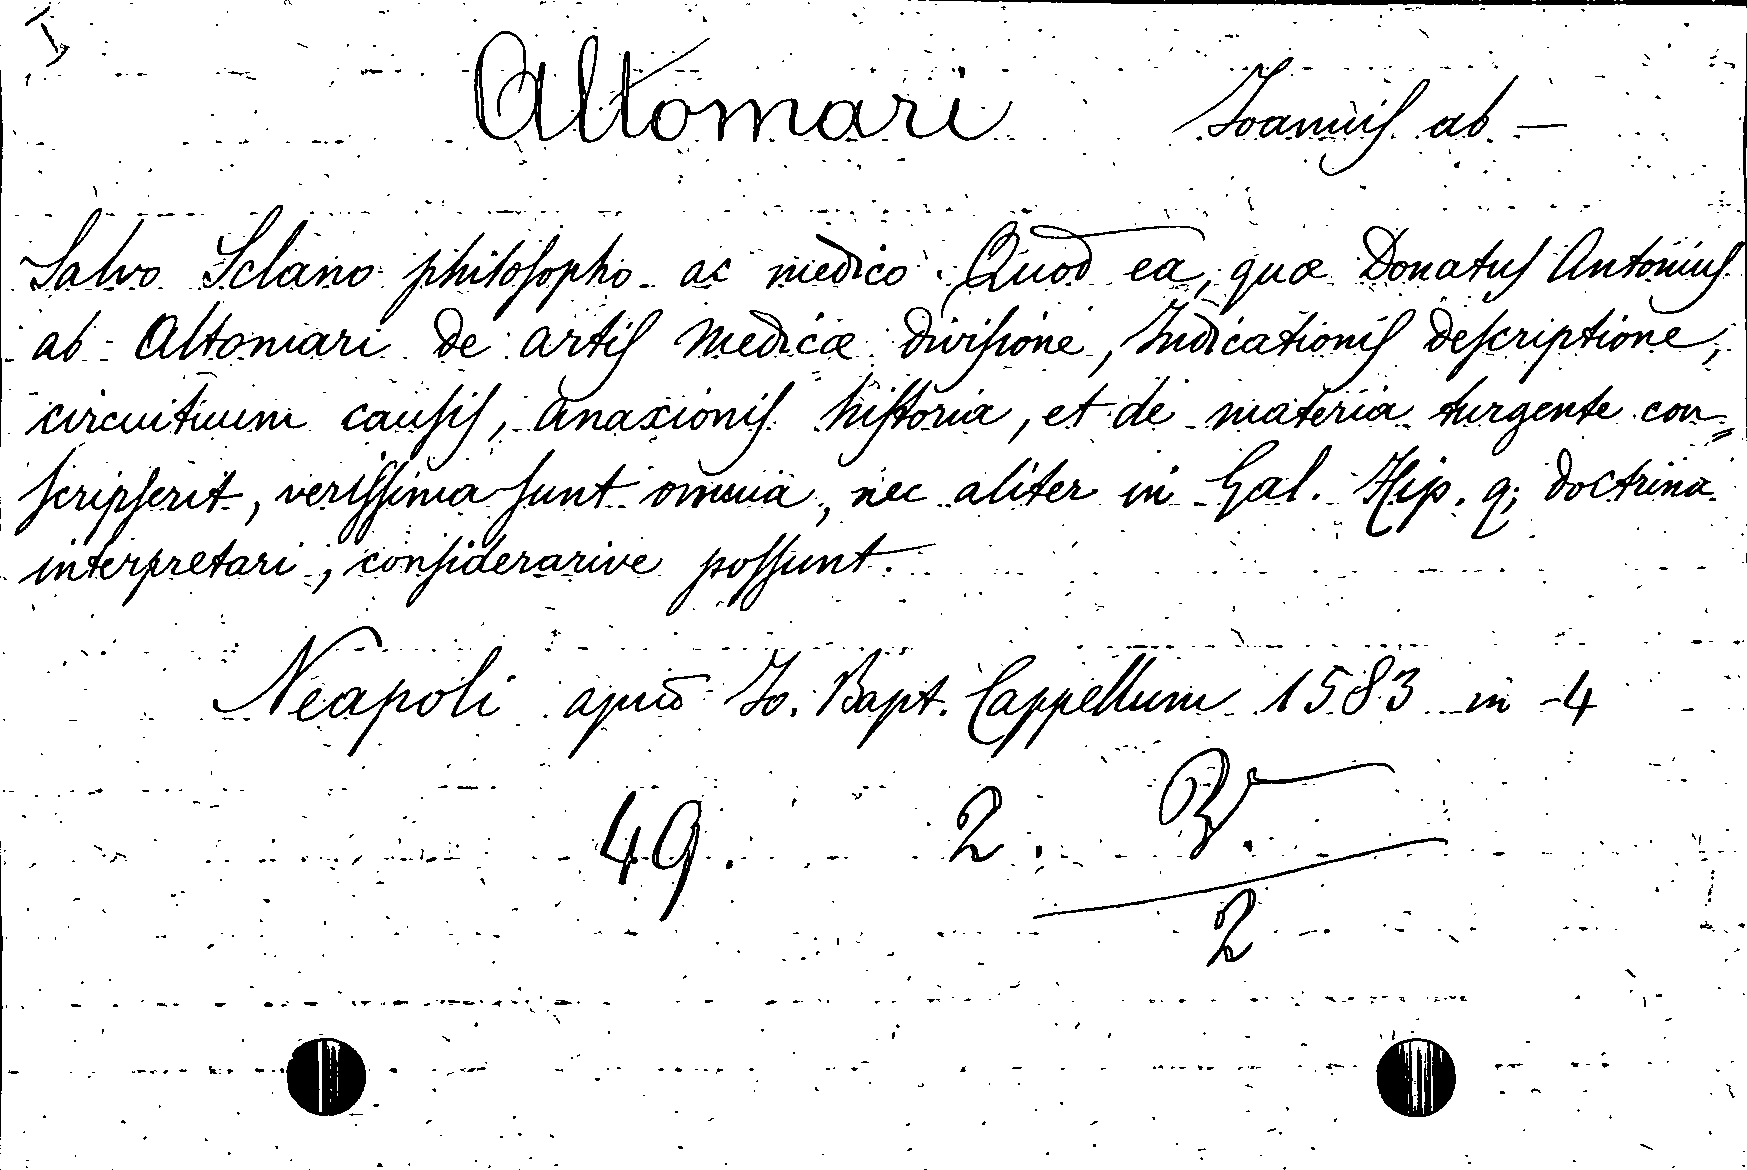 Altomari Joannis ab —
Salvo Sclano philosopho ac medico. Quod ea, quæ Donatus Antonius
ab Altomari de artis medicæ divisione, Indicationis descriptione,
circuituum causis, anaxionis historia, et de materia turgente con=
scripserit, verissima sunt omnia, nec aliter in Gal. Hip. q; doctrina
interpretari, considerarive possunt.
Neapoli apud Jo. Bapt. Cappellum 1583 in -4
49. 2.
2